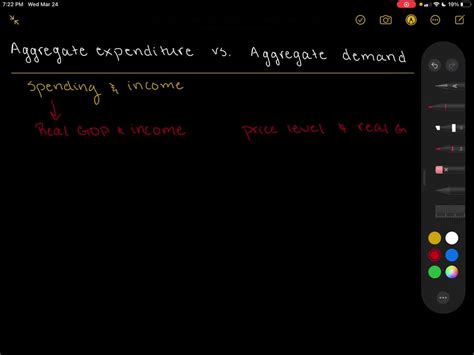 7:22 PM Wed Mar 24
19%
Aggregate expenditure vs. Aggregate demand
Spending & income
Real GDP & income price level & real G